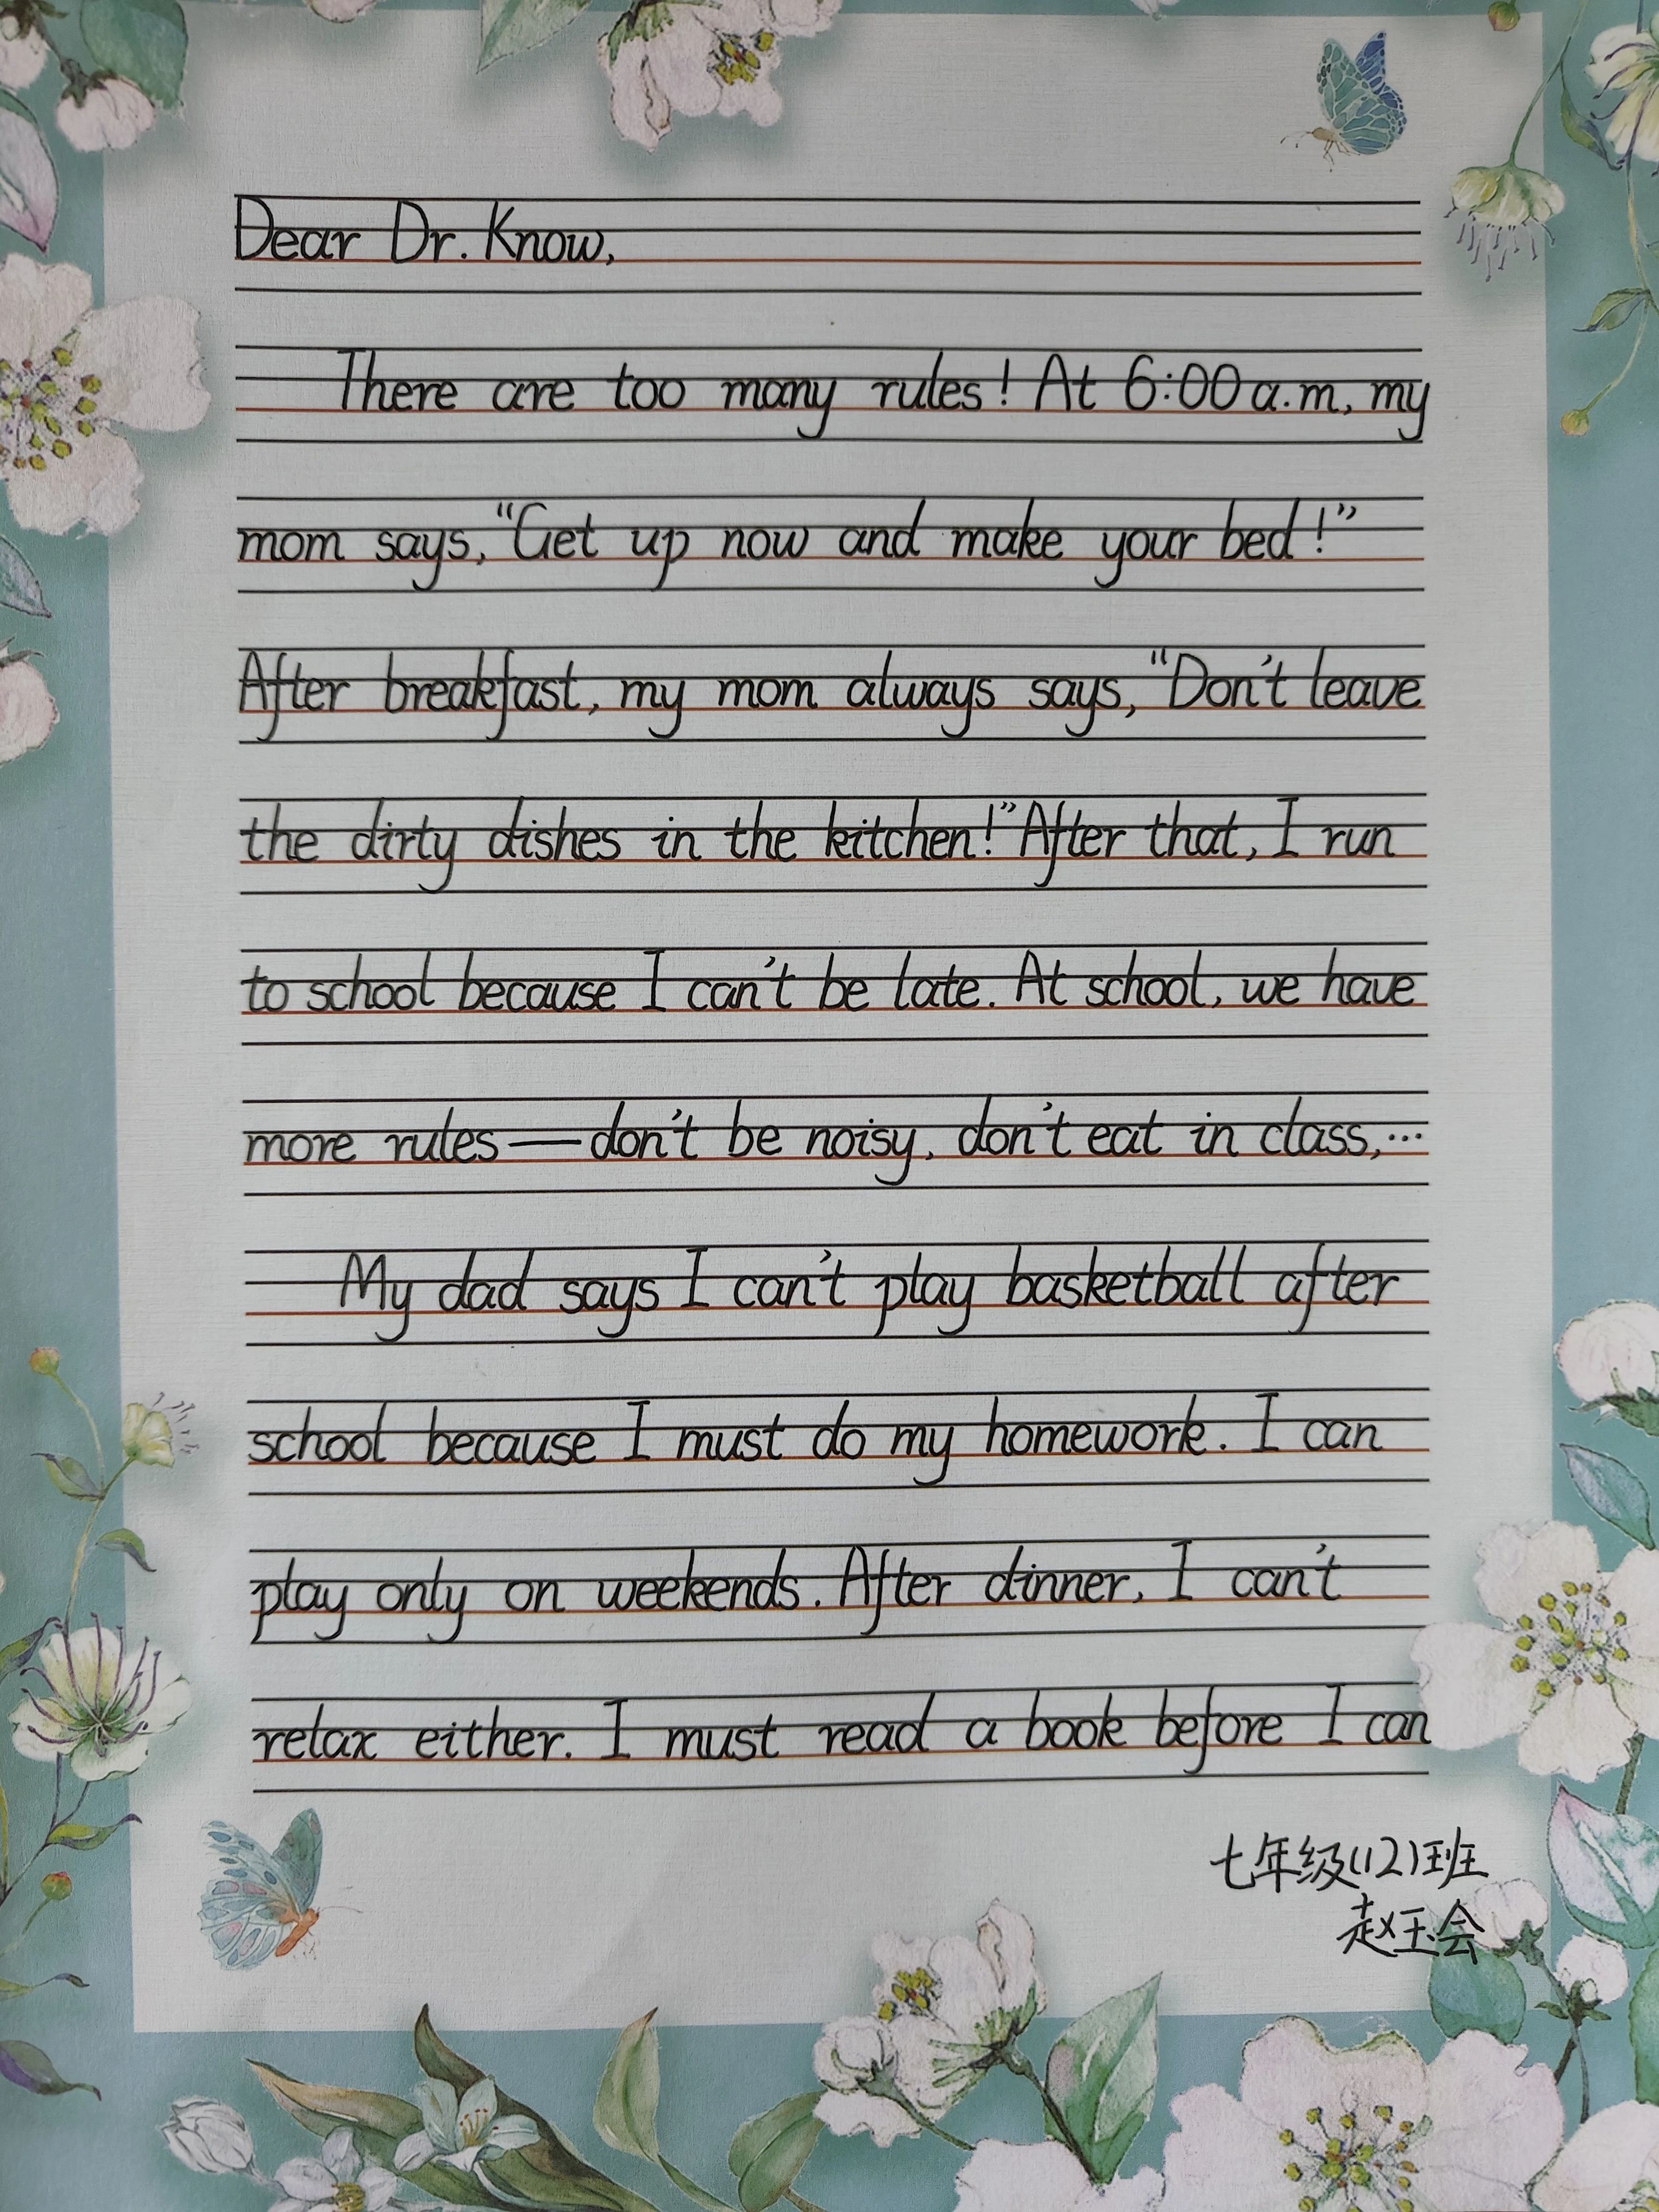 Dear Dr. Know,
There are too many rules! At 6:00 a.m, my
mom says, "Get up now and make your bed!"
After breakfast, my mom always says, "Don't leave
the dirty dishes in the kitchen!" After that, I run
to school because I can't be late. At school, we have
more rules — don't be noisy, don't eat in class, ...
My dad says I can't play basketball after
school because I must do my homework. I can
play only on weekends. After dinner, I can't
relax either. I must read a book before I can
七年级(12)班
赵玉会